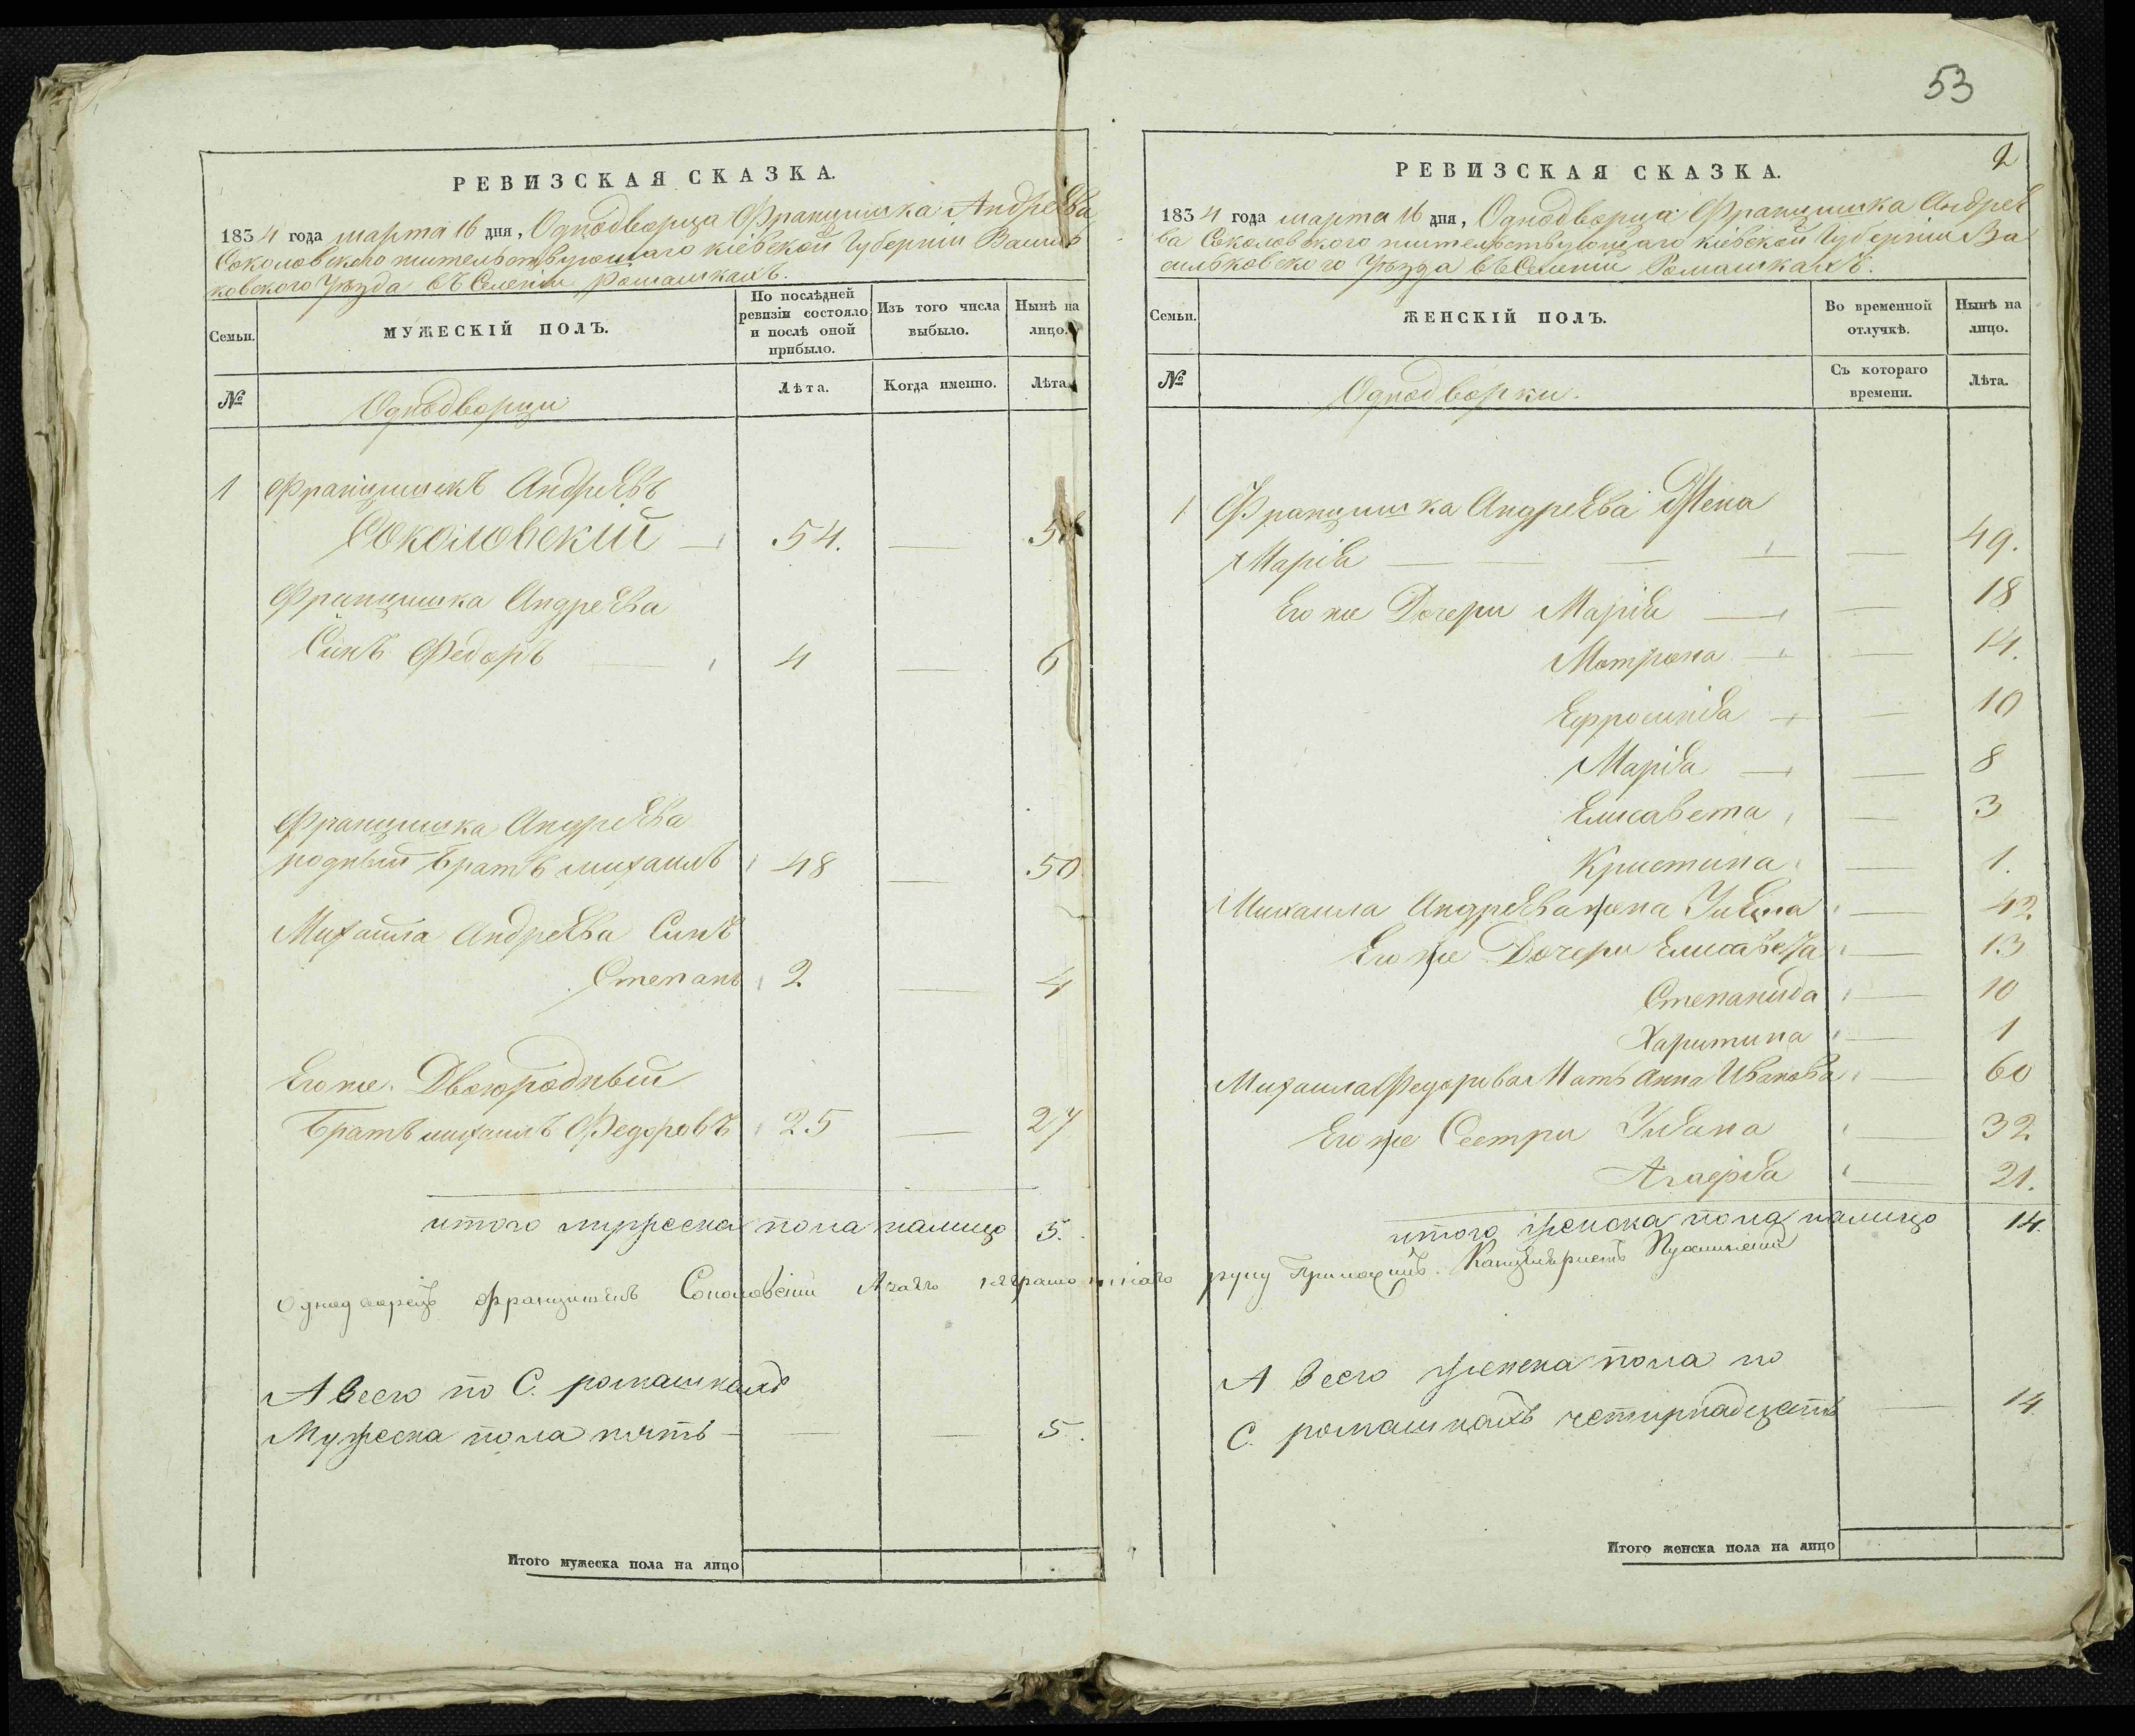 53
РЕВИЗСКАЯ СКАЗКА.
1834 года марта 16 дня, Однодворца Францишка Андреева
Соколовского жительствующаго кіевской Губерніи Василь
ковского Уезда въ Селеніи Ромашкахъ.
Семьи.
МУЖЕСКІЙ ПОЛЪ.
По послѣдней ревизіи состояло и послѣ оной прибыло.
Изъ того числа выбыло.
Нынѣ на лицо.
№
Однодворци
Лѣта.
Когда именно.
Лѣта.
1 Францишекъ Андреевъ
Соколовскій 54.
Францишка Андреева
Синъ Федоръ 4 — 6
Францишка Андреева
родный братъ михаилъ 48 — 50
Михаила Андреева Синъ
Степанъ 2 — 4
Его же Двоюродный
братъ михаилъ Федоровъ 25 — 27
итого мужеска пола налицо 5.
Однодворецъ Францишекъ Соколовскій
А всего по С. ромашкахъ
Мужеска пола пять — 5.
Итого мужеска пола на лицо
2
РЕВИЗСКАЯ СКАЗКА.
1834 года марта 16 дня, Однодворца Францишка Андрее
ва Соколовского жительствующаго кіевской Губерніи Ва
сильковского Уезда въ Селеніи Ромашкахъ.
Семьи.
ЖЕНСКІЙ ПОЛЪ.
Во временной отлучкѣ.
Нынѣ на лицо.
№
Однодворки.
Съ котораго времени.
Лѣта.
1 Францишка Андреева Жена
Маріа — 49.
Его же Дочери Маріа — 18
Мотрона — 14.
Ефросиніа — 10
Маріа — 8
Елисавета — 3
Кристина — 1.
Михаила Андреева жена — 42.
Его же Дочери Елисавета — 13
Степанида — 10
Харитина — 1
Михаила Федорова Мать Анна Иванова — 60
Его же Сестри — 32
21.
итого женска пола налицо 14.
руку Приложилъ Канцеляристъ
А всего женска пола по
С. ромашкахъ четирнадцать — 14.
Итого женска пола на лицо